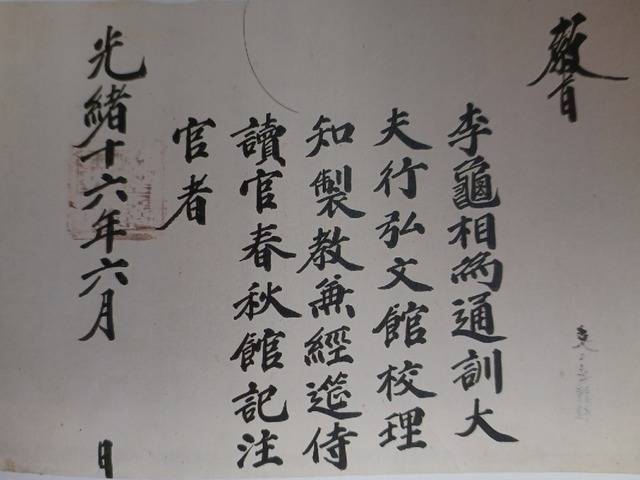 教旨
李龜相為通訓大
夫行弘文館校理
知製教兼經筵侍
讀官春秋館記注
官者
光緒十六年六月 日